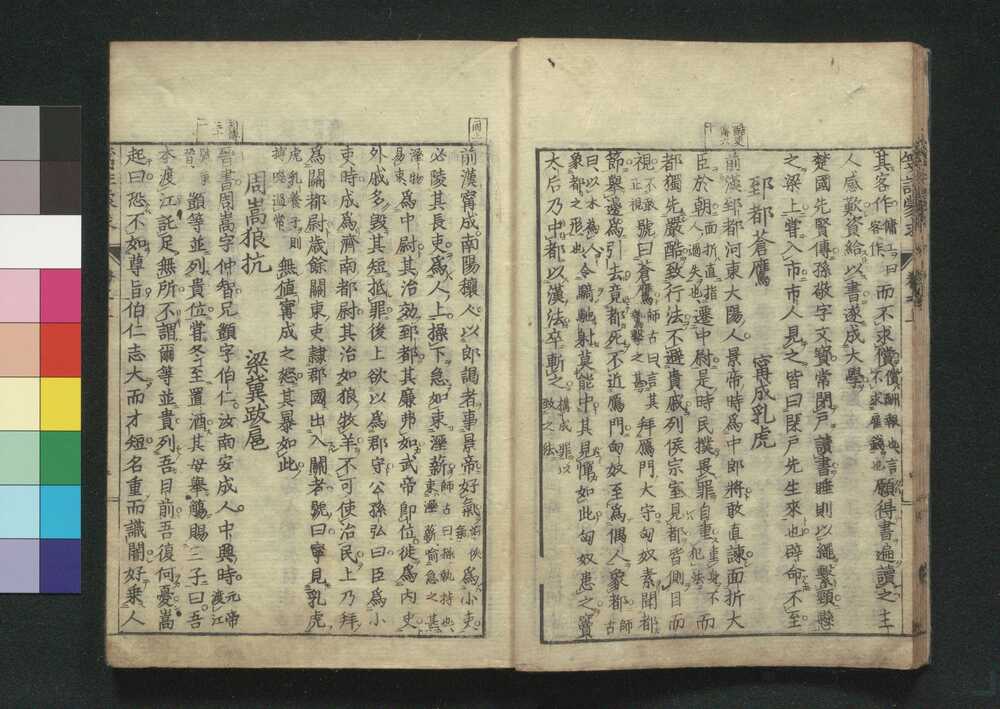 其客作傭工曰客作而不求償償酬報也言不求雇錢也願得書遍讀之主
人感歎資給以書遂成大學
楚國先賢傳孫敬字文寶常閉戸讀書睡則以繩繫頸懸
之梁上嘗入市市人見之皆曰閉戸先生來也辟命不至
郅都蒼鷹　甯成乳虎
前漢郅都河東大陽人景帝時爲中郎將敢直諫面折大
臣於朝面折直指人過失也遷中尉是時民樸畏罪自重重身不犯法而
都獨先嚴酷致行法不避貴戚列侯宗室見都皆側目而
視不正視承號曰蒼鷹師古曰言其鷙擊之甚拜鴈門大守匈奴素聞都
節舉邊爲引去竟都死不近鴈門匈奴至爲偶人象都師古
曰以木爲人象都之形也令騎馳射莫能中其見憚如此匈奴患之竇
太后乃中都以漢法卒斬之構成罪以致之法
前漢甯成南陽穰人以郎謁者事景帝好氣氣俠爲小吏
必陵其長吏爲人上操下急如束溼薪師古曰操執持也束溼薪喻急之甚
溼物易束爲中尉其治效郅都其廉弗如武帝卽位徙爲內史
外戚多毀其短抵罪後上欲以爲郡守公孫弘曰臣爲小
吏時成爲濟南都尉其治如狼牧羊不可使治民上乃拜
爲關都尉歲餘關東吏隷郡國出入關者號曰寧見乳虎
虎乳養子則搏噬過常無値甯成之怒其暴如此
周嵩狼抗　梁冀跋扈
晉書周嵩字仲智兄顗字伯仁汝南安成人中興時元帝渡江
顗等並列貴位嘗冬至置酒其母舉觴賜三子曰吾
本渡江託足無所不謂爾等並貴列吾目前吾復何憂嵩
起曰恐不如尊旨伯仁志大而才短名重而識闇好乗人